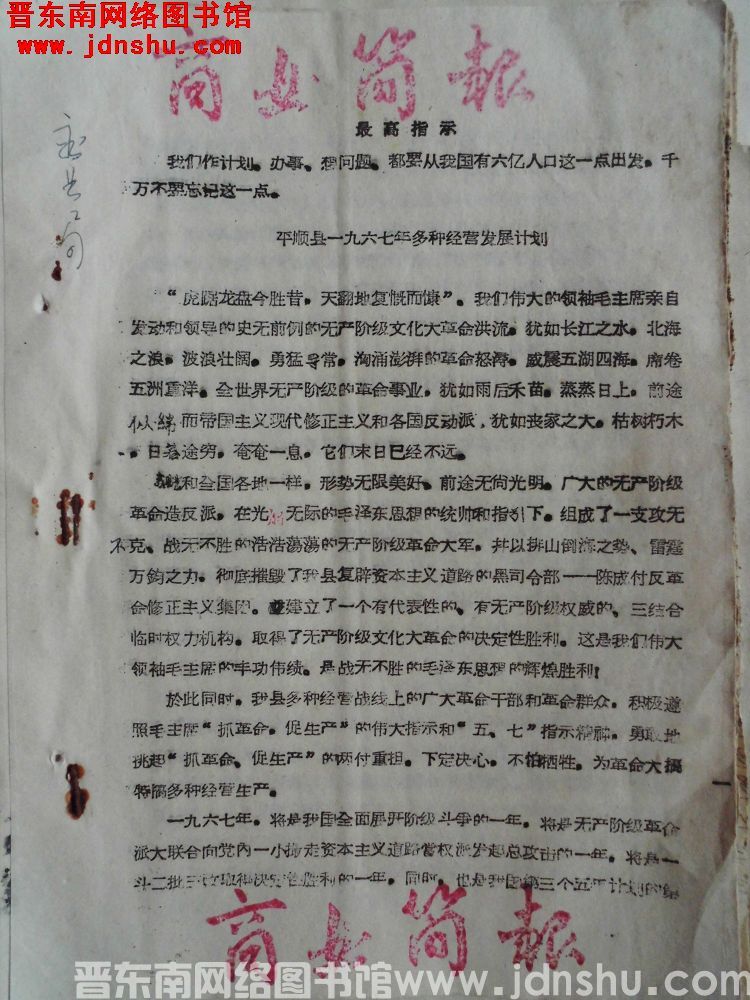 晋东南网络图书馆
www.jdnshu.com
商业简报
最高指示
我们作计划。办事、想问题。都要从我国有六亿人口这一点出发。千
万不要忘记这一点。
平顺县一九六七年多种经营发展计划
“虎踞龙盘今胜昔。天翻地复慨而慷”。我们伟大的领袖毛主席亲自
发动和领导的史无前例的无产阶级文化大革命洪流。犹如长江之水。北海
之浪。波浪壮阔。勇猛导常。洶涌澎湃的革命怒涛。威震五湖四海。席卷
五洲重洋。全世界无产阶级的革命事业。犹如雨后禾苗。蒸蒸日上。前途
似绵而帝国主义现代修正主义和各国反动派，犹如丧家之犬。枯树朽木
。日暮途穷。奄奄一息。它们末日已经不远。
和全国各地一样。形势无限美好。前途无尚光明。广大的无产阶级
革命造反派。在光 无际的毛泽东思想的统帅和指引下。组成了一支攻无
不克、战无不胜的浩浩荡荡的无产阶级革命大军。并以排山倒海之势、雷霆
万钧之力。彻底摧毁了我县复辟资本主义道路的黑司令部——陈成付反革
命修正主义集团。建立了一个有代表性的、有无产阶级权威的、三结合
临时权力机构。取得了无产阶级文化大革命的决定性胜利。这是我们伟大
领袖毛主席的丰功伟绩。是战无不胜的毛泽东思想的辉煌胜利！
於此同时。我县多种经营战线上的广大革命干部和革命群众。积极遵
照毛主席“抓革命。促生产”的伟大指示和“五、七”指示精神。勇敢地
挑起“抓革命、促生产”的两付重担。下定决心。不怕牺牲。为革命大搞
特搞多种经营生产。
一九六七年。将是我国全面展开阶级斗争的一年。将是无产阶级革命
派大联合向党内一小撮走资本主义道路当权派发起总攻击的一年。将是一
斗二批三改取得决定性胜利的一年。同时。也是我国第三个五年计划的第
商业简报
晋东南网络图书馆www.jdnshu.com